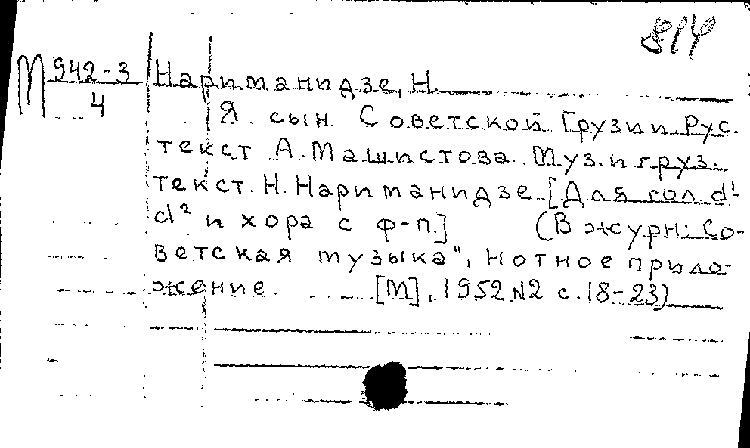 814
М 942-3/4
Нариманидзе, Н.
Я сын Советской Грузии. Рус.
текст А. Машистова. Муз. и груз.
текст Н. Нариманидзе. [Для гол. d¹-
d² и хора с ф-п.] (В журн: Со-
ветская музыка", нотное прило-
жение. [М], 1952 №2 с. 18-23)